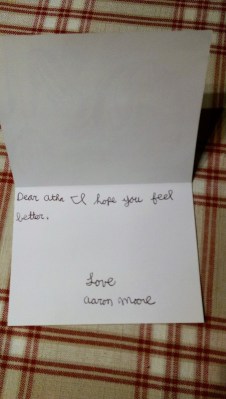 Dear Atha I hope you feel
better.
Love
Aaron Moore